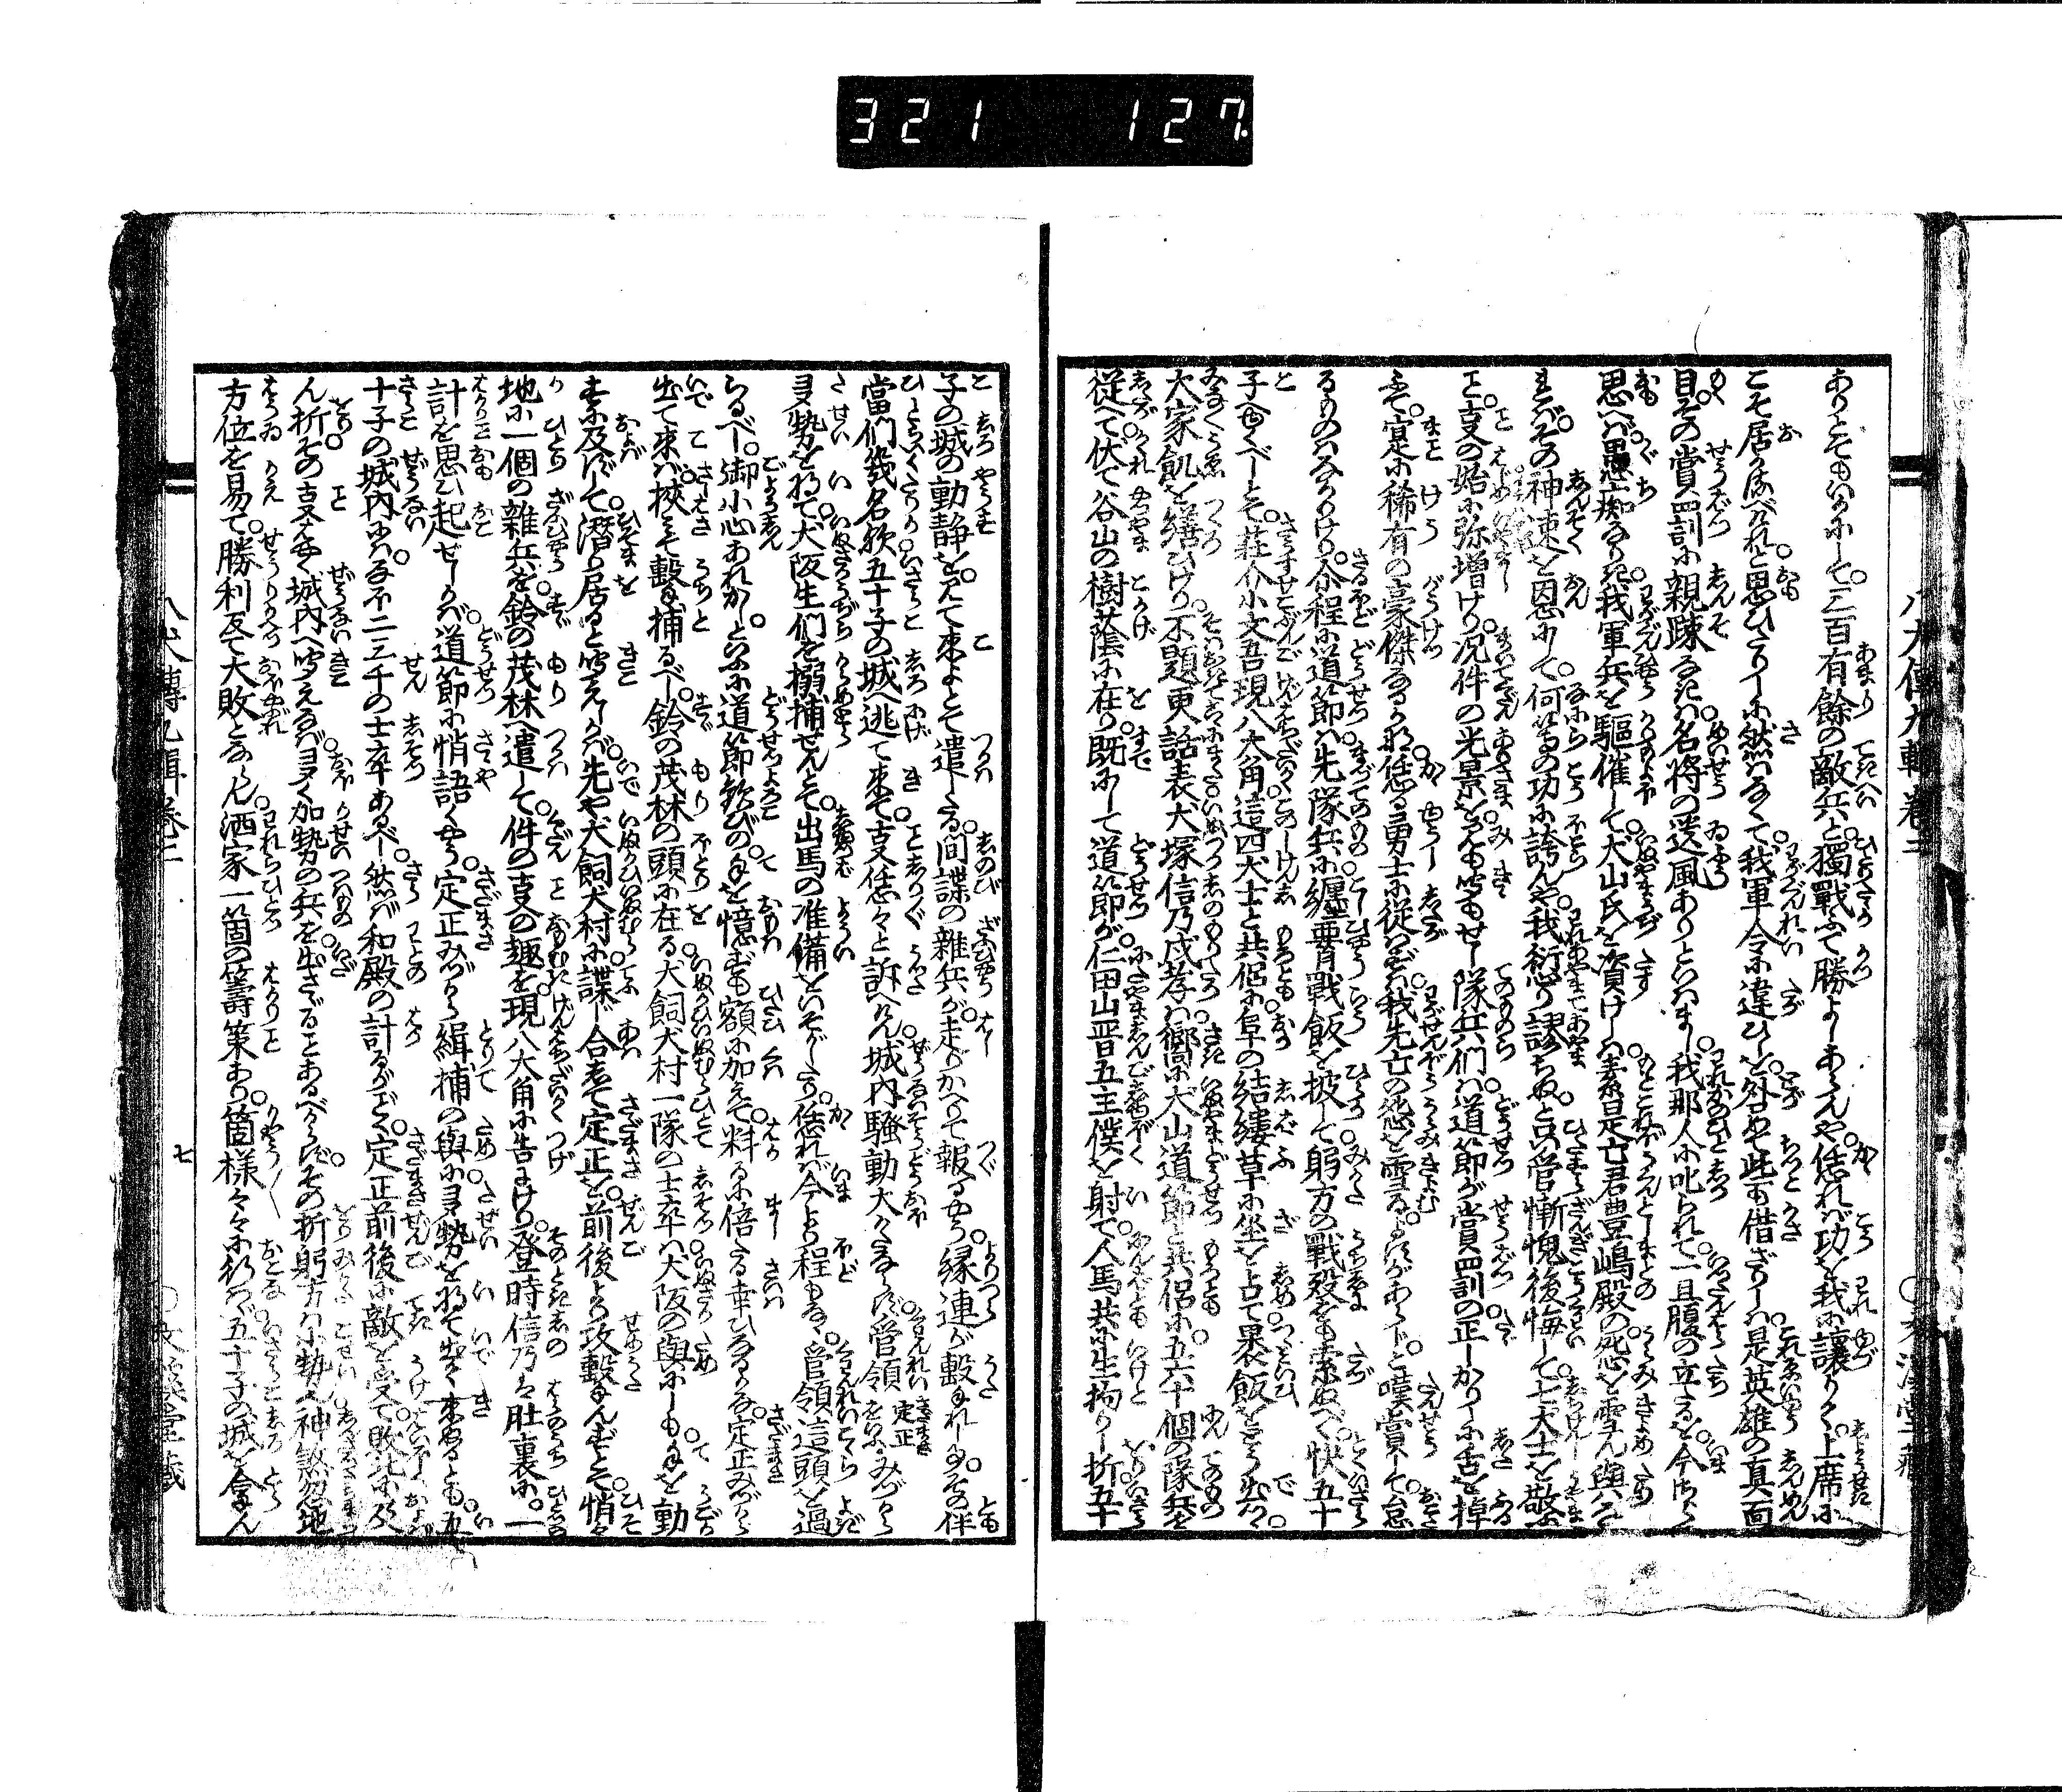 321 127
八犬傳九輯巻二
○文溪堂藏
ありとそもいかにして。三百有餘の敵兵と。獨戰ふて勝よしあらんや。恁れバ功を我に讓りく。上席に
こそ居るべけれと。思ひたりしに然ハなくて。我軍令に違ひしを。咎めて些も借ざりしハ。是英雄の真面
目。その賞罰に親疎なきハ。名将の遺風ありといハまし。我那人に叱られて。一旦腹の立たるを。今つら〳〵
思へバ愚痴なりき。我軍兵を驅催して。犬山氏を資けしハ。素是亡君豊嶋殿の。死怨を雪ん與なら
ずバ。その神速を恩にして。何等の功に誇んや。我衍り謬ちぬと。只管慚愧後悔して。七犬士を敬ふ
こと。事の始に弥増けり。况件の光景を。見も聞もせし隊兵們ハ。道節が賞罰の。正しかりしに舌を掉
ふて。寔に稀有の豪傑なるかな。恁る勇士に從ずバ。我先亡の怨を雪るよすがあらじ。と嘆賞して。怠
るものハなかりけり。尒程に道節ハ。先隊兵に纏要背戰飯を披して。躬方の戰死をも索ぬべく。快五十
子へ赴くべしとて。荘介小文吾現八大角。這四犬士と共侶に。阜の結縷草に坐を占て。裹飯をとう出て。
大家飢を繕ひけり。不題更話表犬塚信乃戍孝ハ。嚮に犬山道節と共侶に。五六十個の隊兵を
從へて。伏て谷山の樹蔭に在り。既にして道節が。仁田山晋五主僕を射て。人馬共に生拘りし折。五十
子の城の動静を。見て來よとて遣したる。間諜の雜兵が。走りかへりて報るやう。縁連が撃れしかバ。その伴
當們幾名欤。五十子の城へ逃て來て。事恁々と訴へけん。城内騒動大かたならず。管領定正をいふみづから
多勢を將て。犬阪生們を搦捕せんとて。出馬の准備をいそがしたり。恁れバ今より程もなく。管領這頭を過
らるべし。御小心あれかし。といふに道節歓びの。手を憶ずも額に加えて。料るに倍たる幸ひなるかな。定正みづから
出て來バ。挾みて撃も捕るべし。鈴の茂林の頭に在る。犬飼犬村一隊の士卒ハ。犬阪の與にしも。手を動
すに及ずして。潜り居ると聞えしかバ。先や犬飼犬村に。諜し合して定正を。前後より攻撃んずとて。悄
地に一個の雜兵を。鈴の茂林へ遣して。件の事の趣を。現八大角に告よけり。登時信乃ハ肚裏に。一
計を思ひ起せしかバ。道節に悄語くやう。定正みづから緝捕の與に。多勢を將て出て來ぬるとも。五
十子の城内にハ。なほ二三千の士卒あるべし。然バ和殿の計るがごとく。定正前後に敵を受て。敗北に及
ん折。その事早く城内へ聞えなバ。多く加勢の兵を。出さずることあるべからず。その折躬方ハ小勢。神煞忽地
方位を易て。勝利反て大敗とならん。洒家一箇の籌策あり。箇様々々に行ハヾ。五十子の城を拿らん
八犬傳九輯巻二
七
○文溪堂藏